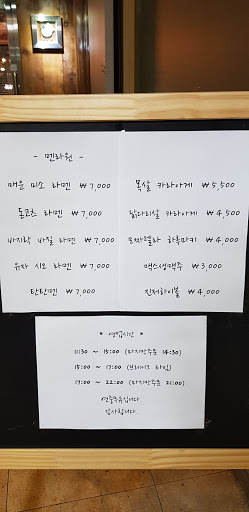 - 멘라원 -
매운 미소 라멘 ₩ 7,000
돈코츠 라멘 ₩ 7,000
바지락 바질 라멘 ₩ 7,000
유자 시오 라멘 ₩ 7,000
탄탄멘 ₩ 7,000
목살 카라아게 ₩ 5,500
닭다리살 카라아게 ₩ 4,500
모짜렐라 하루마키 ₩ 4,000
맥스생맥주 ₩ 3,000
진저하이볼 ₩ 4,000
* 영업시간 *
11:30 ~ 15:00 (마지막주문 14:30)
15:00 ~ 17:00 (브레이크 타임)
17:00 ~ 22:00 (마지막주문 21:00)
연중무휴입니다.
감사합니다.